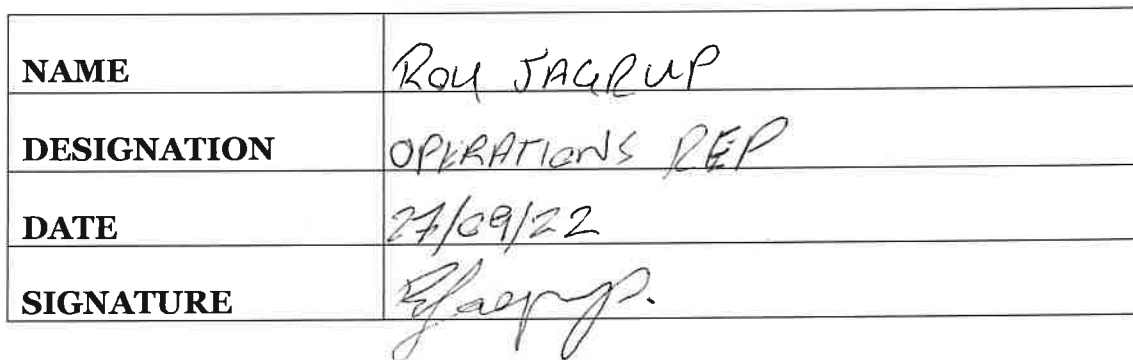 NAME ROY JAGRUP
DESIGNATION OPERATIONS REP
DATE 27/09/22
SIGNATURE